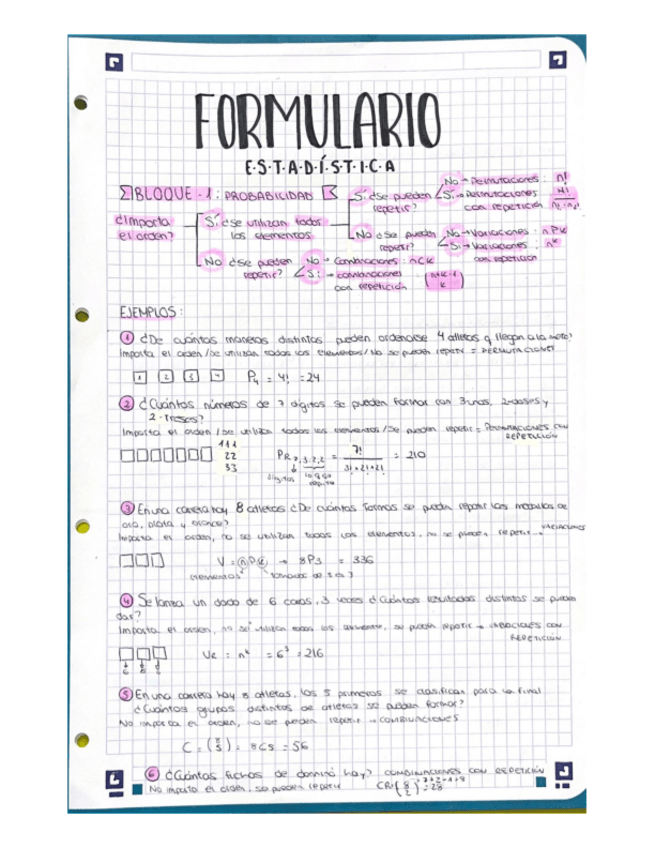 FORMULARIO
E·S·T·A·D·Í·S·T·I·C·A
BLOQUE - 1: PROBABILIDAD
¿Importa el orden?
Sí ¿Se utilizan todos los elementos
Sí ¿Se pueden repetir?
No → Permutaciones : n!
Sí → Permutaciones con repetición
No ¿Se pueden repetir?
No → Variaciones : nPk
Sí → Variaciones : nᵏ con repetición
No ¿Se pueden repetir?
No → Combinaciones : nCk
Sí → combinaciones con repetición (n+k-1 k)
EJEMPLOS:
1 ¿De cuántas maneras distintas pueden ordenarse 4 atletas q llegan a la meta?
Importa el orden / Se utilizan todos los elementos / No se pueden repetir = PERMUTACIONES
1 2 3 4 P₄ = 4! = 24
2 ¿Cuántos números de 7 dígitos se pueden formar con 3 unos, 2 doses y
2 - Treses?
Importa el orden / se utilizan todos los elementos / Se pueden repetir = Permutaciones con
REPETICIÓN
111
22
33
PR 7,3,2,2 = 7! / 3!·2!·2! = 210
dígitos lo q se repite
3 En una carrera hay 8 atletas ¿De cuántas formas se pueden repartir las medallas de
oro, plata y bronce?
Importa el orden, no se utilizan todos los elementos, no se pueden repetir → VARIACIONES
V = nPk → 8P3 = 336
elementos tomados de 3 en 3
4 Se lanza un dado de 6 caras, 3 veces ¿Cuántos resultados distintos se pueden
dar?
Importa el orden, no se utilizan todos los elementos, se pueden repetir → VARIACIONES CON
REPETICIÓN
6 6 6
= nᵏ = 6³ = 216
5 En una carrera hay 8 atletas, los 5 primeros se clasifican para la final
¿Cuántos grupos distintos de atletas se pueden formar?
No importa el orden, no se pueden repetir → COMBINACIONES
C = (8 5) = 8C5 = 56
6 ¿Cuántas fichas de dominó hay? COMBINACIONES CON REPETICIÓN
No importa el orden, se pueden repetir
CR (8 2) = 28